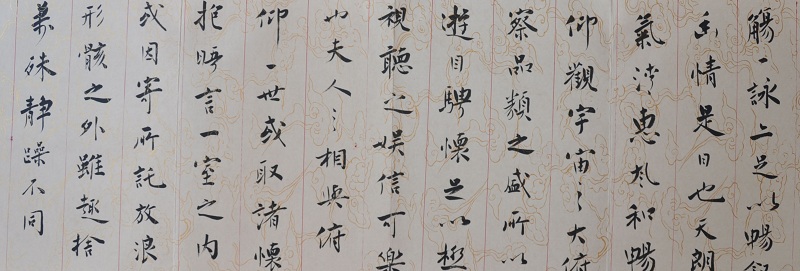 觴一詠亦足以暢敘
幽情是日也天朗
氣清惠風和暢
仰觀宇宙之大俯
察品類之盛所以
遊目騁懷足以極
視聽之娛信可樂
也夫人之相與俯
仰一世或取諸懷
抱晤言一室之內
或因寄所託放浪
形骸之外雖趣捨
萬殊靜躁不同